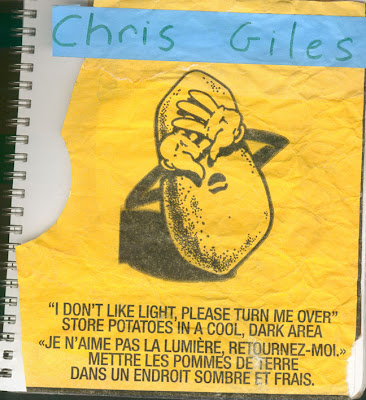 Chris Giles
"I DON'T LIKE LIGHT, PLEASE TURN ME OVER"
STORE POTATOES IN A COOL, DARK AREA
«JE N'AIME PAS LA LUMIÈRE, RETOURNEZ-MOI.»
METTRE LES POMMES DE TERRE
DANS UN ENDROIT SOMBRE ET FRAIS.